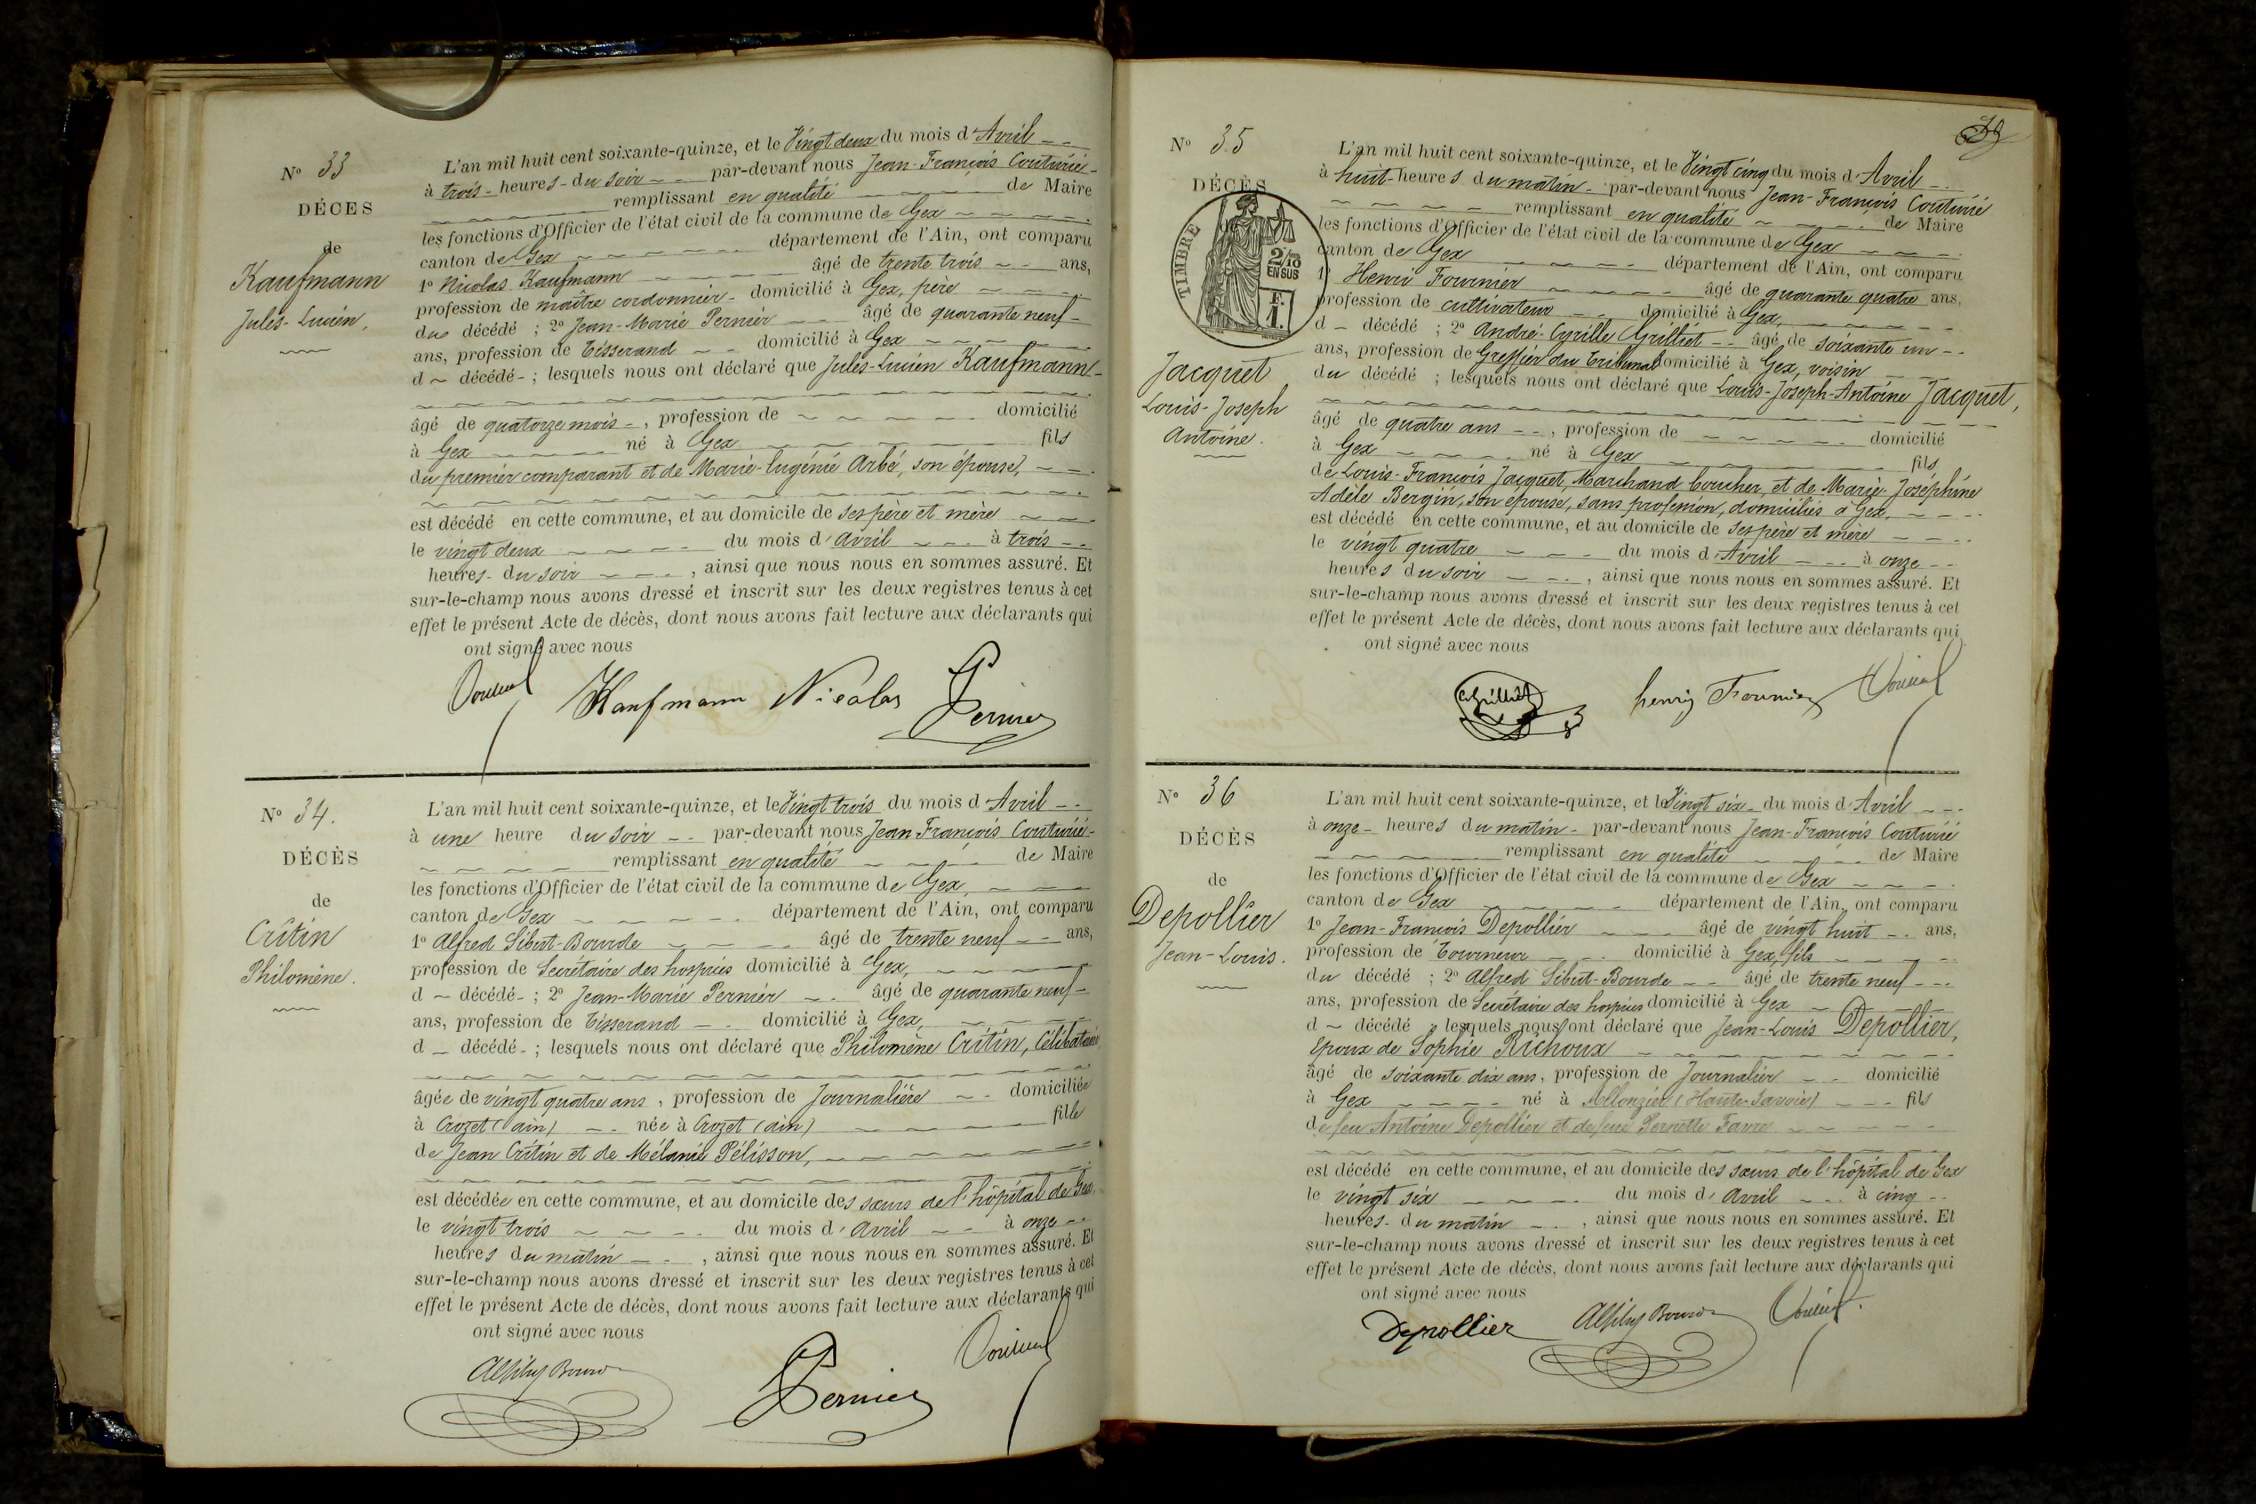 N° 33
DÉCES
de
Kaufmann
Jules-Lucien.
L'an mil huit cent soixante-quinze, et le Vingt deux du mois d'Avril
à trois heures du soir par-devant nous Jean-François Couturié
remplissant en qualité de Maire
les fonctions d'Officier de l'état civil de la commune de Gex
canton de Gex département de l'Ain, ont comparu
1° Nicolas Kaufmann âgé de trente trois ans,
profession de maître cordonnier domicilié à Gex, père
du décédé ; 2° Jean-Marie Pernier âgé de quarante neuf
ans, profession de Tisserand domicilié à Gex
d décédé ; lesquels nous ont déclaré que Jules-Lucien Kaufmann
âgé de quatorze mois , profession de domicilié
à Gex né à Gex fils
du premier comparant et de Marie-Eugénie Arbé, son épouse,
est décédé en cette commune, et au domicile de ses père et mère
le vingt deux du mois d'avril à trois
heures du soir , ainsi que nous nous en sommes assuré. Et
sur-le-champ nous avons dressé et inscrit sur les deux registres tenus à cet
effet le présent Acte de décès, dont nous avons fait lecture aux déclarants qui
ont signé avec nous
Kaufmann Nicolas Pernier
N° 34.
DÉCÈS
de
Critin
Philomène.
L'an mil huit cent soixante-quinze, et le Vingt trois du mois d'Avril
à une heure du soir par-devant nous Jean François Couturié
remplissant en qualité de Maire
les fonctions d'Officier de l'état civil de la commune de Gex,
canton de Gex département de l'Ain, ont comparu
1° Alfred Sibut-Bourde âgé de trente neuf ans,
profession de Secrétaire des hospices domicilié à Gex,
d décédé ; 2° Jean-Marie Pernier âgé de quarante neuf
ans, profession de Tisserand domicilié à Gex,
d décédé ; lesquels nous ont déclaré que Philomène Critin, Célibataire
âgée de vingt quatre ans , profession de Journalière domiciliée
à Crozet (ain) née à Crozet (ain) fille
de Jean Critin et de Mélanie Pélisson,
est décédée en cette commune, et au domicile des sœurs de l'hôpital de Gex,
le vingt trois du mois d'avril à onze
heures du matin , ainsi que nous nous en sommes assuré. Et
sur-le-champ nous avons dressé et inscrit sur les deux registres tenus à cet
effet le présent Acte de décès, dont nous avons fait lecture aux déclarants qui
ont signé avec nous
Pernier
N° 35
DÉCÈS
TIMBRE
2/10
EN SUS
F.
1.
Jacquet
Louis-Joseph
Antoine.
L'an mil huit cent soixante-quinze, et le Vingt cinq du mois d'Avril
à huit heures du matin par-devant nous Jean-François Couturié
remplissant en qualité de Maire
les fonctions d'Officier de l'état civil de la commune de Gex
canton de Gex département de l'Ain, ont comparu
1° Henri Fournier âgé de quarante quatre ans,
profession de cultivateur domicilié à Gex,
d décédé ; 2° André-Cyrille Grilliet âgé de soixante un
ans, profession de Greffier du tribunal domicilié à Gex, voisin
du décédé ; lesquels nous ont déclaré que Louis-Joseph-Antoine Jacquet,
âgé de quatre ans , profession de domicilié
à Gex né à Gex fils
de Louis-François Jacquet, Marchand boucher, et de Marie-Joséphine
Adèle Bergin, son épouse, sans profession, domiciliés à Gex,
est décédé en cette commune, et au domicile de ses père et mère
le vingt quatre du mois d'Avril à onze
heures du soir , ainsi que nous nous en sommes assuré. Et
sur-le-champ nous avons dressé et inscrit sur les deux registres tenus à cet
effet le présent Acte de décès, dont nous avons fait lecture aux déclarants qui
ont signé avec nous
Grilliet henry Fournier
N° 36
DÉCÈS
de
Depollier
Jean-Louis.
L'an mil huit cent soixante-quinze, et le Vingt six du mois d'Avril
à onze heures du matin par-devant nous Jean-François Couturié
remplissant en qualité de Maire
les fonctions d'Officier de l'état civil de la commune de Gex
canton de Gex département de l'Ain, ont comparu
1° Jean-François Depollier âgé de vingt huit ans,
profession de Tourneur domicilié à Gex, fils
du décédé ; 2° Alfred Sibut-Bourde âgé de trente neuf
ans, profession de Secrétaire des hospices domicilié à Gex
d décédé ; lesquels nous ont déclaré que Jean-Louis Depollier,
Epoux de Sophie Richoux
âgé de soixante dix ans, profession de Journalier domicilié
à Gex né à Allonzier (Haute-Savoie) fils
de feu Antoine Depollier et de feue Pernette Favre
est décédé en cette commune, et au domicile des sœurs de l'hôpital de Gex
le vingt six du mois d'avril à cinq
heures du matin , ainsi que nous nous en sommes assuré. Et
sur-le-champ nous avons dressé et inscrit sur les deux registres tenus à cet
effet le présent Acte de décès, dont nous avons fait lecture aux déclarants qui
ont signé avec nous
Depollier